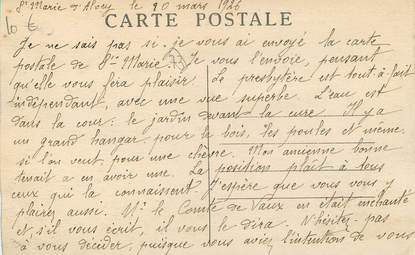 Ste Marie d'Alvey le 20 mars 1926
10 €
CARTE POSTALE
Je ne sais pas si je vous ai envoyé la carte
postale de Ste Marie. Je vous l'envoie, pensant
qu'elle vous fera plaisir. Le presbytère est tout-à-fait
indépendant, avec une vue superbe. L'eau est
dans la cour: le jardin devant la cure. Il y a
un grand hangar pour le bois, les poules et même
si l'on veut, pour une chèvre. Mon ancienne bonne
tenait a en avoir une. La position plaît à tous
ceux qui la connaissent. J'espère que vous vous y
plairez aussi. Mr le Comte de Vaux en était enchanté
et, s'il vous écrit, il vous le dira. N'hésitez-pas
à vous décider, puisque vous aviez l'intention de vous